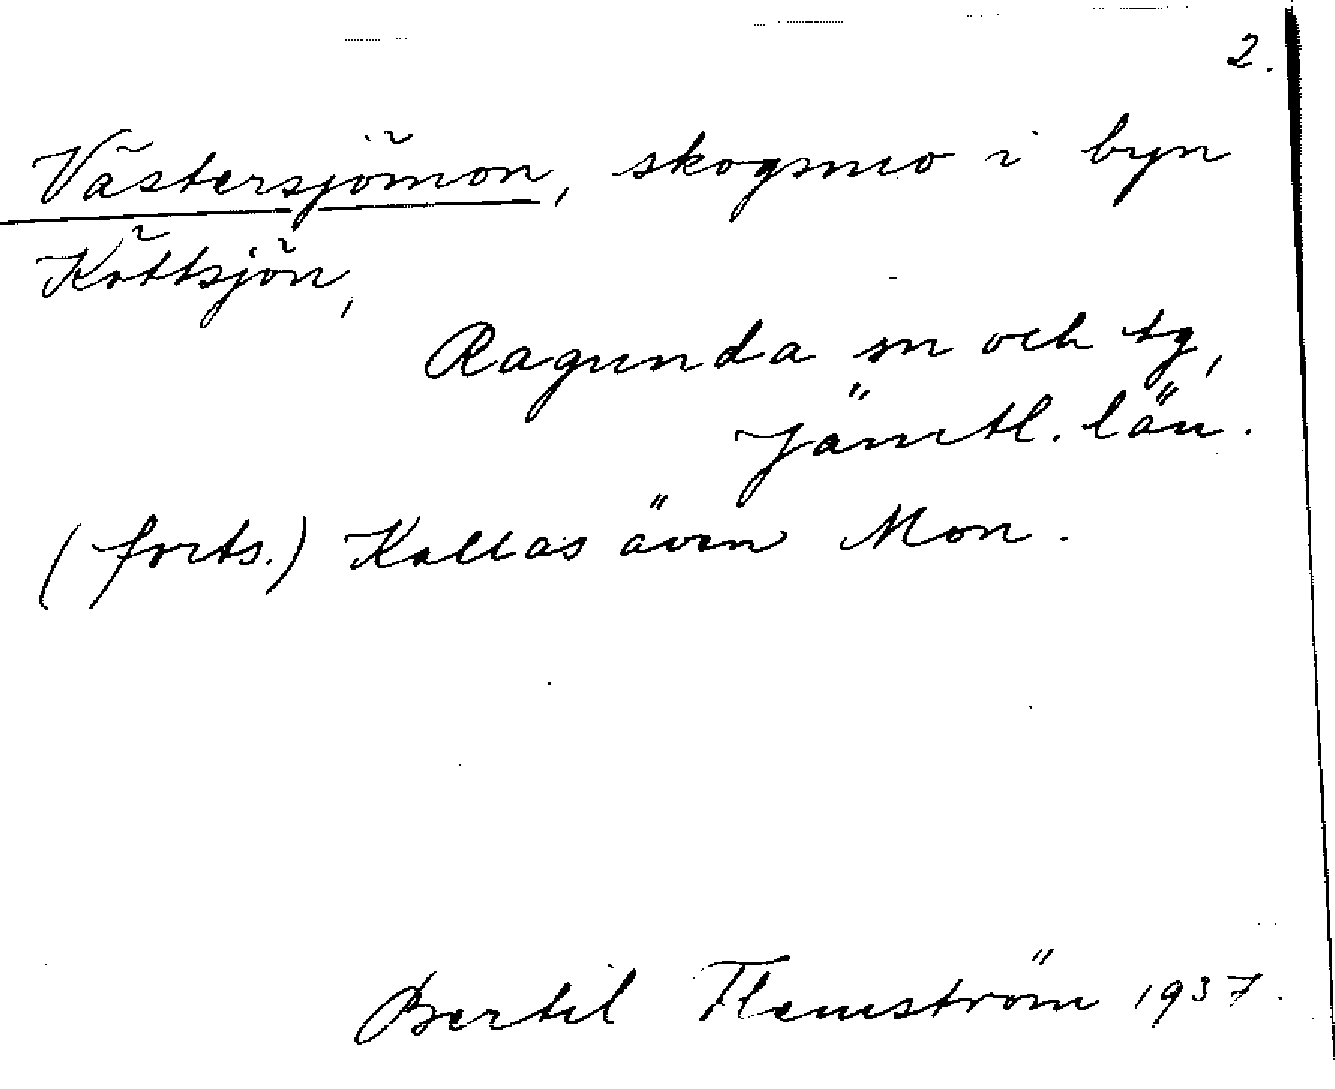 2.
Västersjömon, skogsmo i byn
Köttsjön,
Ragunda sn och tg,
Jämtl. län.
(forts.) Kallas även Mon.
Bertil Flemström 1937.